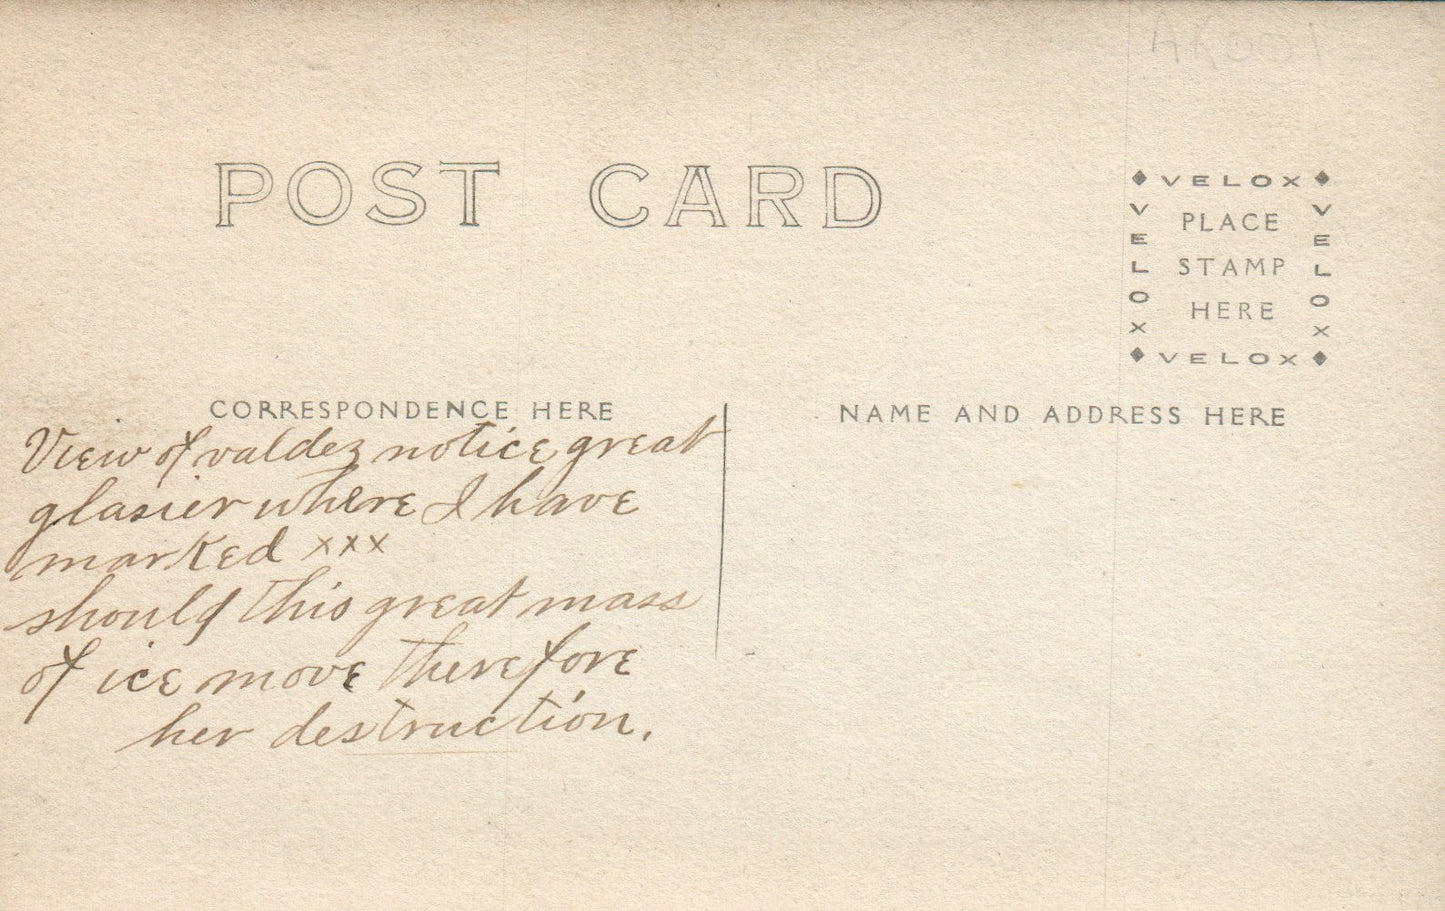 AK001
POST CARD
VELOX
VELOX
PLACE
STAMP
HERE
VELOX
VELOX
CORRESPONDENCE HERE
NAME AND ADDRESS HERE
View of valdez notice great
glasier where I have
marked xxx
should this great mass
of ice move therefore
her destruction.